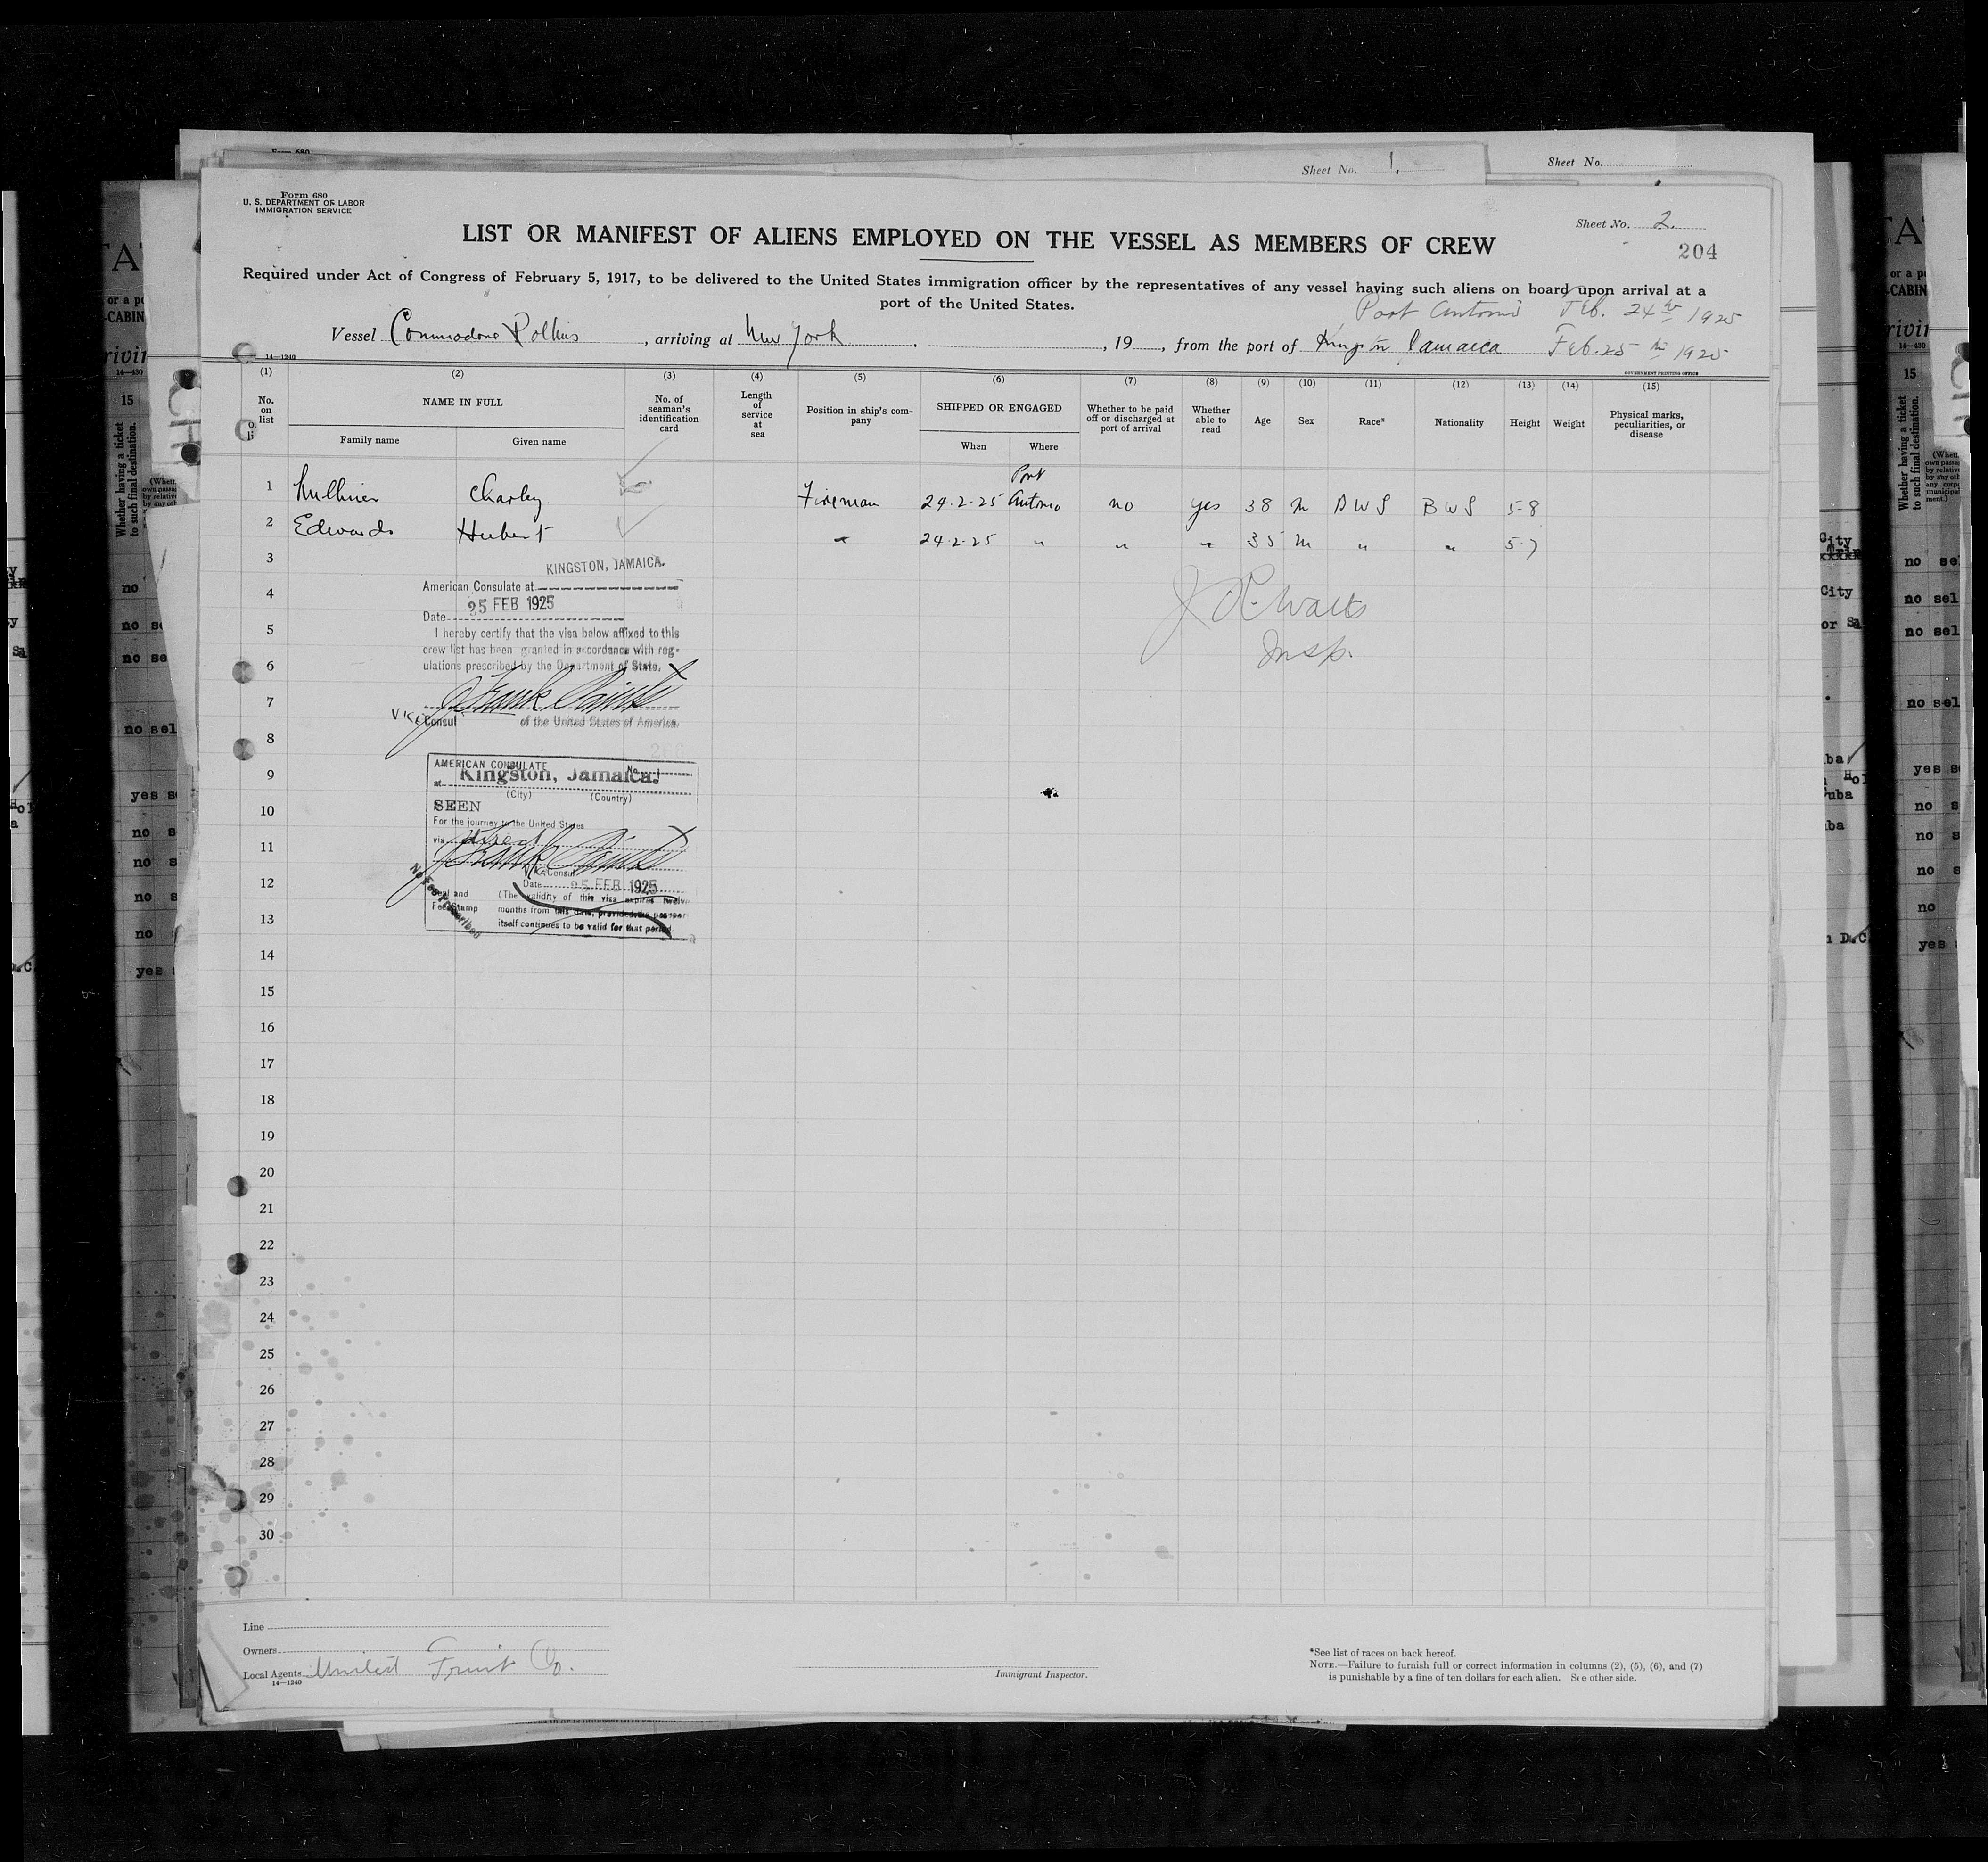 Form 680
U. S. DEPARTMENT OF LABOR
IMMIGRATION SERVICE
Sheet No. 1.
Sheet No.
Sheet No. 2.
204
LIST OR MANIFEST OF ALIENS EMPLOYED ON THE VESSEL AS MEMBERS OF CREW
Required under Act of Congress of February 5, 1917, to be delivered to the United States immigration officer by the representatives of any vessel having such aliens on board upon arrival at a
port of the United States.
Port Antonio Feb. 24th 1925
Vessel Commodore Rollins, arriving at New York, 19, from the port of Kingston Jamaica Feb. 25th 1925
14—1240
GOVERNMENT PRINTING OFFICE
(1) (2) (3) (4) (5) (6) (7) (8) (9) (10) (11) (12) (13) (14) (15)
No. on list
NAME IN FULL
Family name
Given name
No. of seaman's identification card
Length of service at sea
Position in ship's company
SHIPPED OR ENGAGED
When
Where
Whether to be paid off or discharged at port of arrival
Whether able to read
Age
Sex
Race*
Nationality
Height
Weight
Physical marks, peculiarities, or disease
1 Charley Fireman 24-2-25 Port Antonio no yes 38 m B W I B W I 5-8
2 Edwards Hubert " 24-2-25 " " " 35 m " " 5-7
3
4
5
6
7
8
9
10
11
12
13
14
15
16
17
18
19
20
21
22
23
24
25
26
27
28
29
30
KINGSTON, JAMAICA.
American Consulate at
Date 25 FEB 1925
I hereby certify that the visa below affixed to this
crew list has been granted in accordance with reg-
ulations prescribed by the Department of State.
Vice Consul of the United States of America.
Watts
Insp.
AMERICAN CONSULATE No.
at Kingston, Jamaica.
(City) (Country)
SEEN
For the journey to the United States
via
Vice Consul
Date 25 FEB 1925
No Fee Prescribed
Seal and
Fee Stamp
(The validity of this visa expires twelve
months from this date, provided the passport
itself continues to be valid for that period
Line
Owners
Local Agents United Fruit Co.
14—1240
Immigrant Inspector.
*See list of races on back hereof.
NOTE.—Failure to furnish full or correct information in columns (2), (5), (6), and (7)
is punishable by a fine of ten dollars for each alien. See other side.